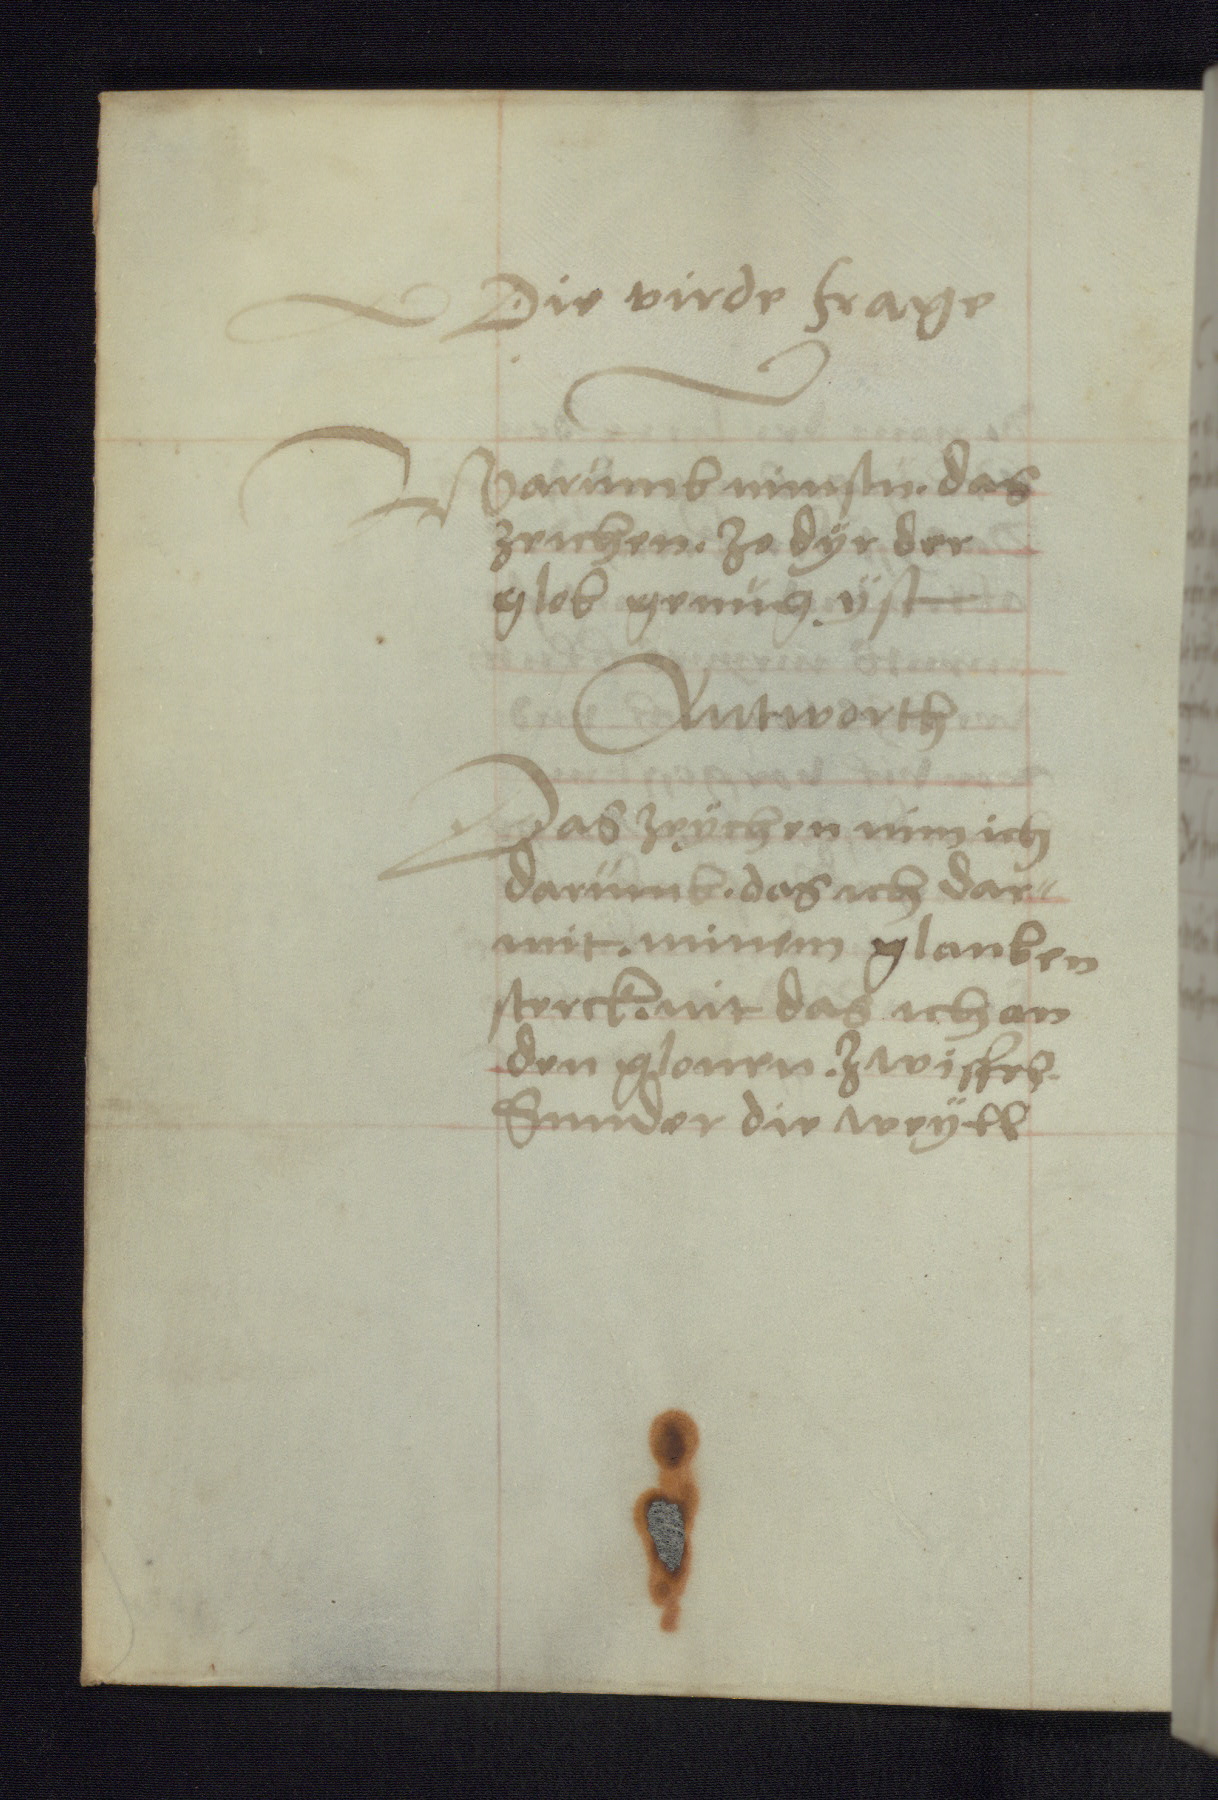 Die virde frage
Warumb nimstu. das
zeichen. so dÿr der
glob genug ÿst
Antworth
Das zeÿchen nim ich
darumb. das ich dar"
mit. minem glauben
sterck. nit das ich an
den glouen. zwiffel.
Sunder die weÿll